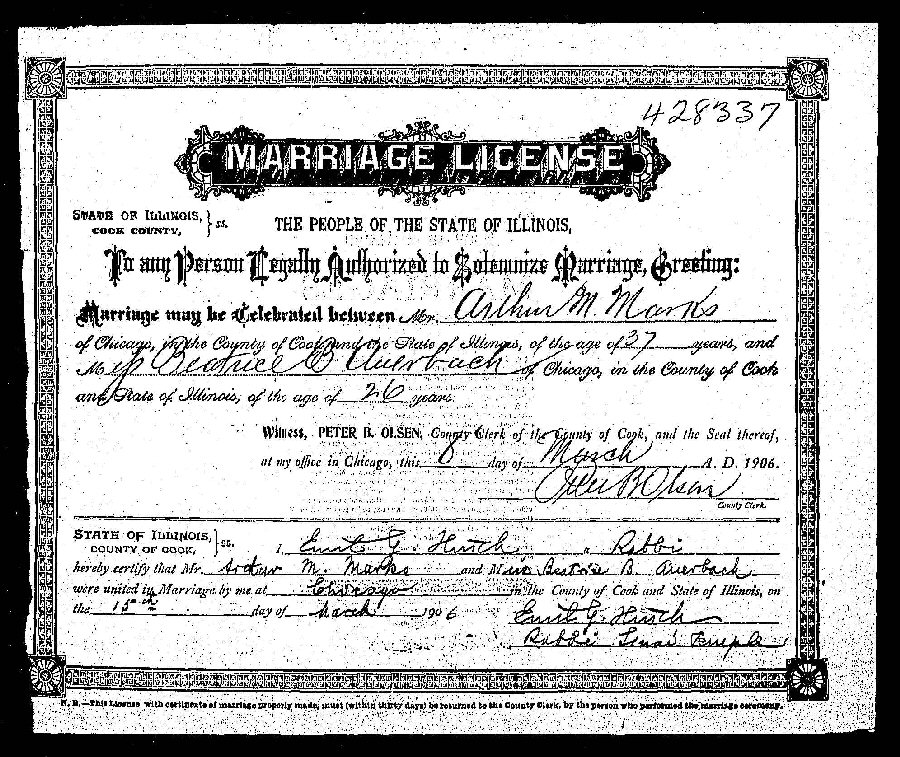 428337
MARRIAGE LICENSE
STATE OF ILLINOIS, } ss. THE PEOPLE OF THE STATE OF ILLINOIS,
COOK COUNTY,
To any Person Legally Authorized to Solemnize Marriage, Greeting:
Marriage may be Celebrated between Mr. Arthur M. Marks
of Chicago, in the County of Cook and the State of Illinois, of the age of 37 years, and
Miss Beatrice B Auerbach of Chicago, in the County of Cook
and State of Illinois, of the age of 26 years.
Witness, PETER B. OLSEN, County Clerk of the County of Cook, and the Seal thereof,
at my office in Chicago, this 8 day of March A. D. 1906.
Peter B Olsen
County Clerk.
STATE OF ILLINOIS, } ss.
COUNTY OF COOK, I, Emil G. Hirsch a Rabbi
hereby certify that Mr. Arthur M. Marks and Miss Beatrice B. Auerbach
were united in Marriage by me at Chicago in the County of Cook and State of Illinois, on
the 15th day of March 1906
Emil G. Hirsch
Rabbi Sinai Temple
N. B.—This License with certificate of marriage properly made, must (within thirty days) be returned to the County Clerk, by the person who performed the marriage ceremony.